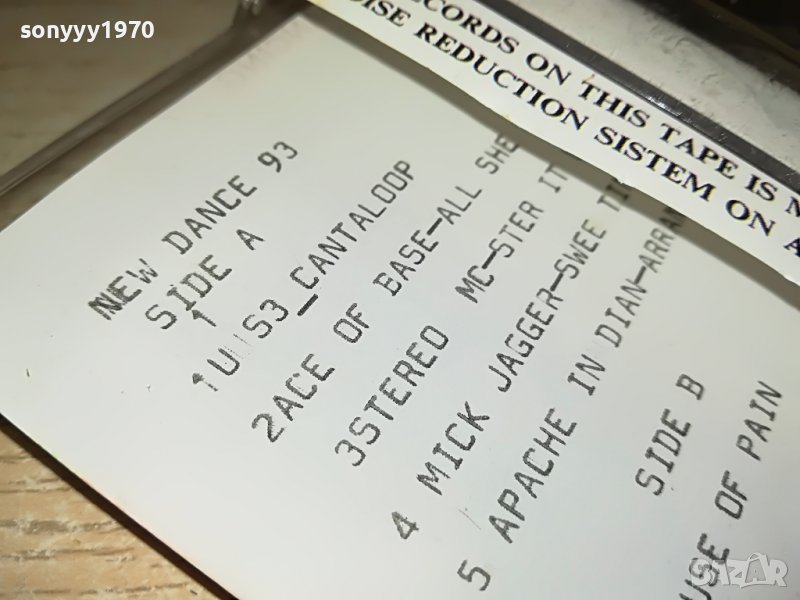 sonyyy1970
RECORDS ON THIS TAPE IS
REDUCTION SISTEM ON
NEW DANCE 93
SIDE A
1
1U S3_CANTALOOP
2ACE OF BASE-ALL SHE
3STEREO MC-STER IT
4 MICK JAGGER-SWEE
5 APACHE IN DIAN-ARRAN
SIDE B
OF PAIN
BAZAR